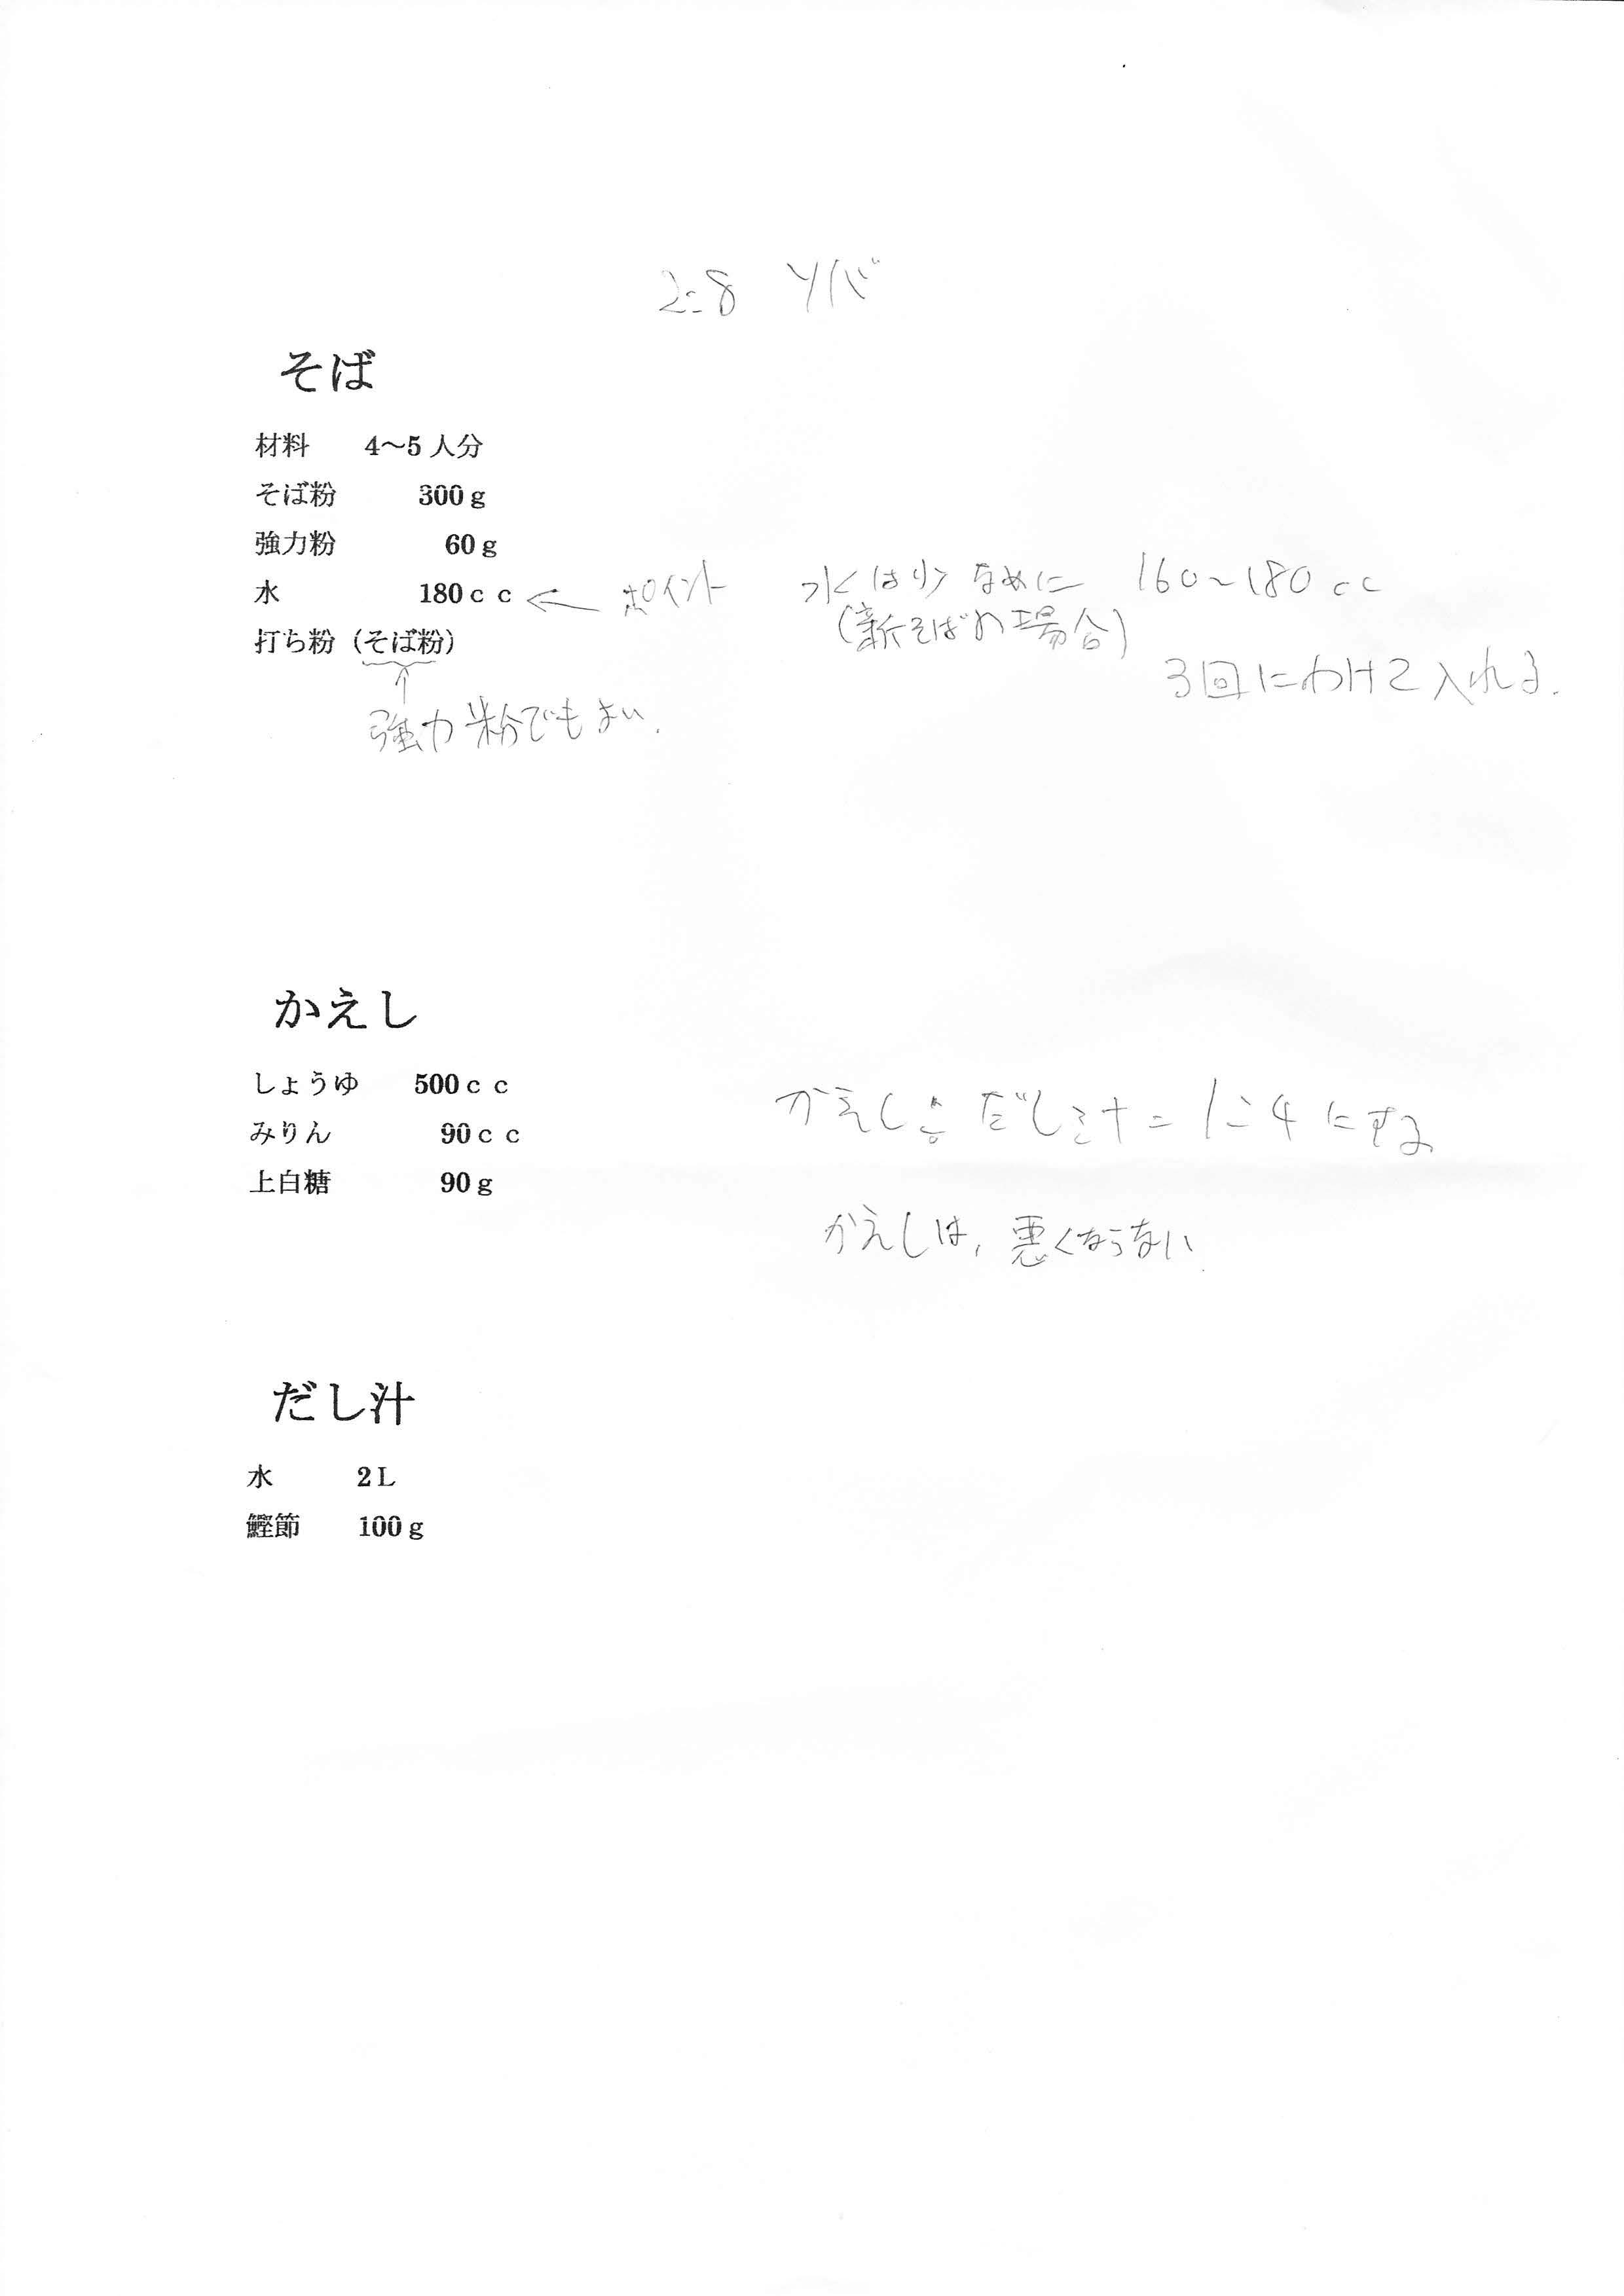 2:8 ソバ
そば
材料 4～5人分
そば粉 300g
強力粉 60g
水 180cc ← ポイント 水は少なめに 160～180cc
(新そばの場合)
打ち粉（そば粉）
3回にわけて入れる.
↑
強力粉でもよい.
かえし
しょうゆ 500cc
かえし:だし汁=1:4にする
みりん 90cc
上白糖 90g
かえしは,悪くならない
だし汁
水 2L
鰹節 100g